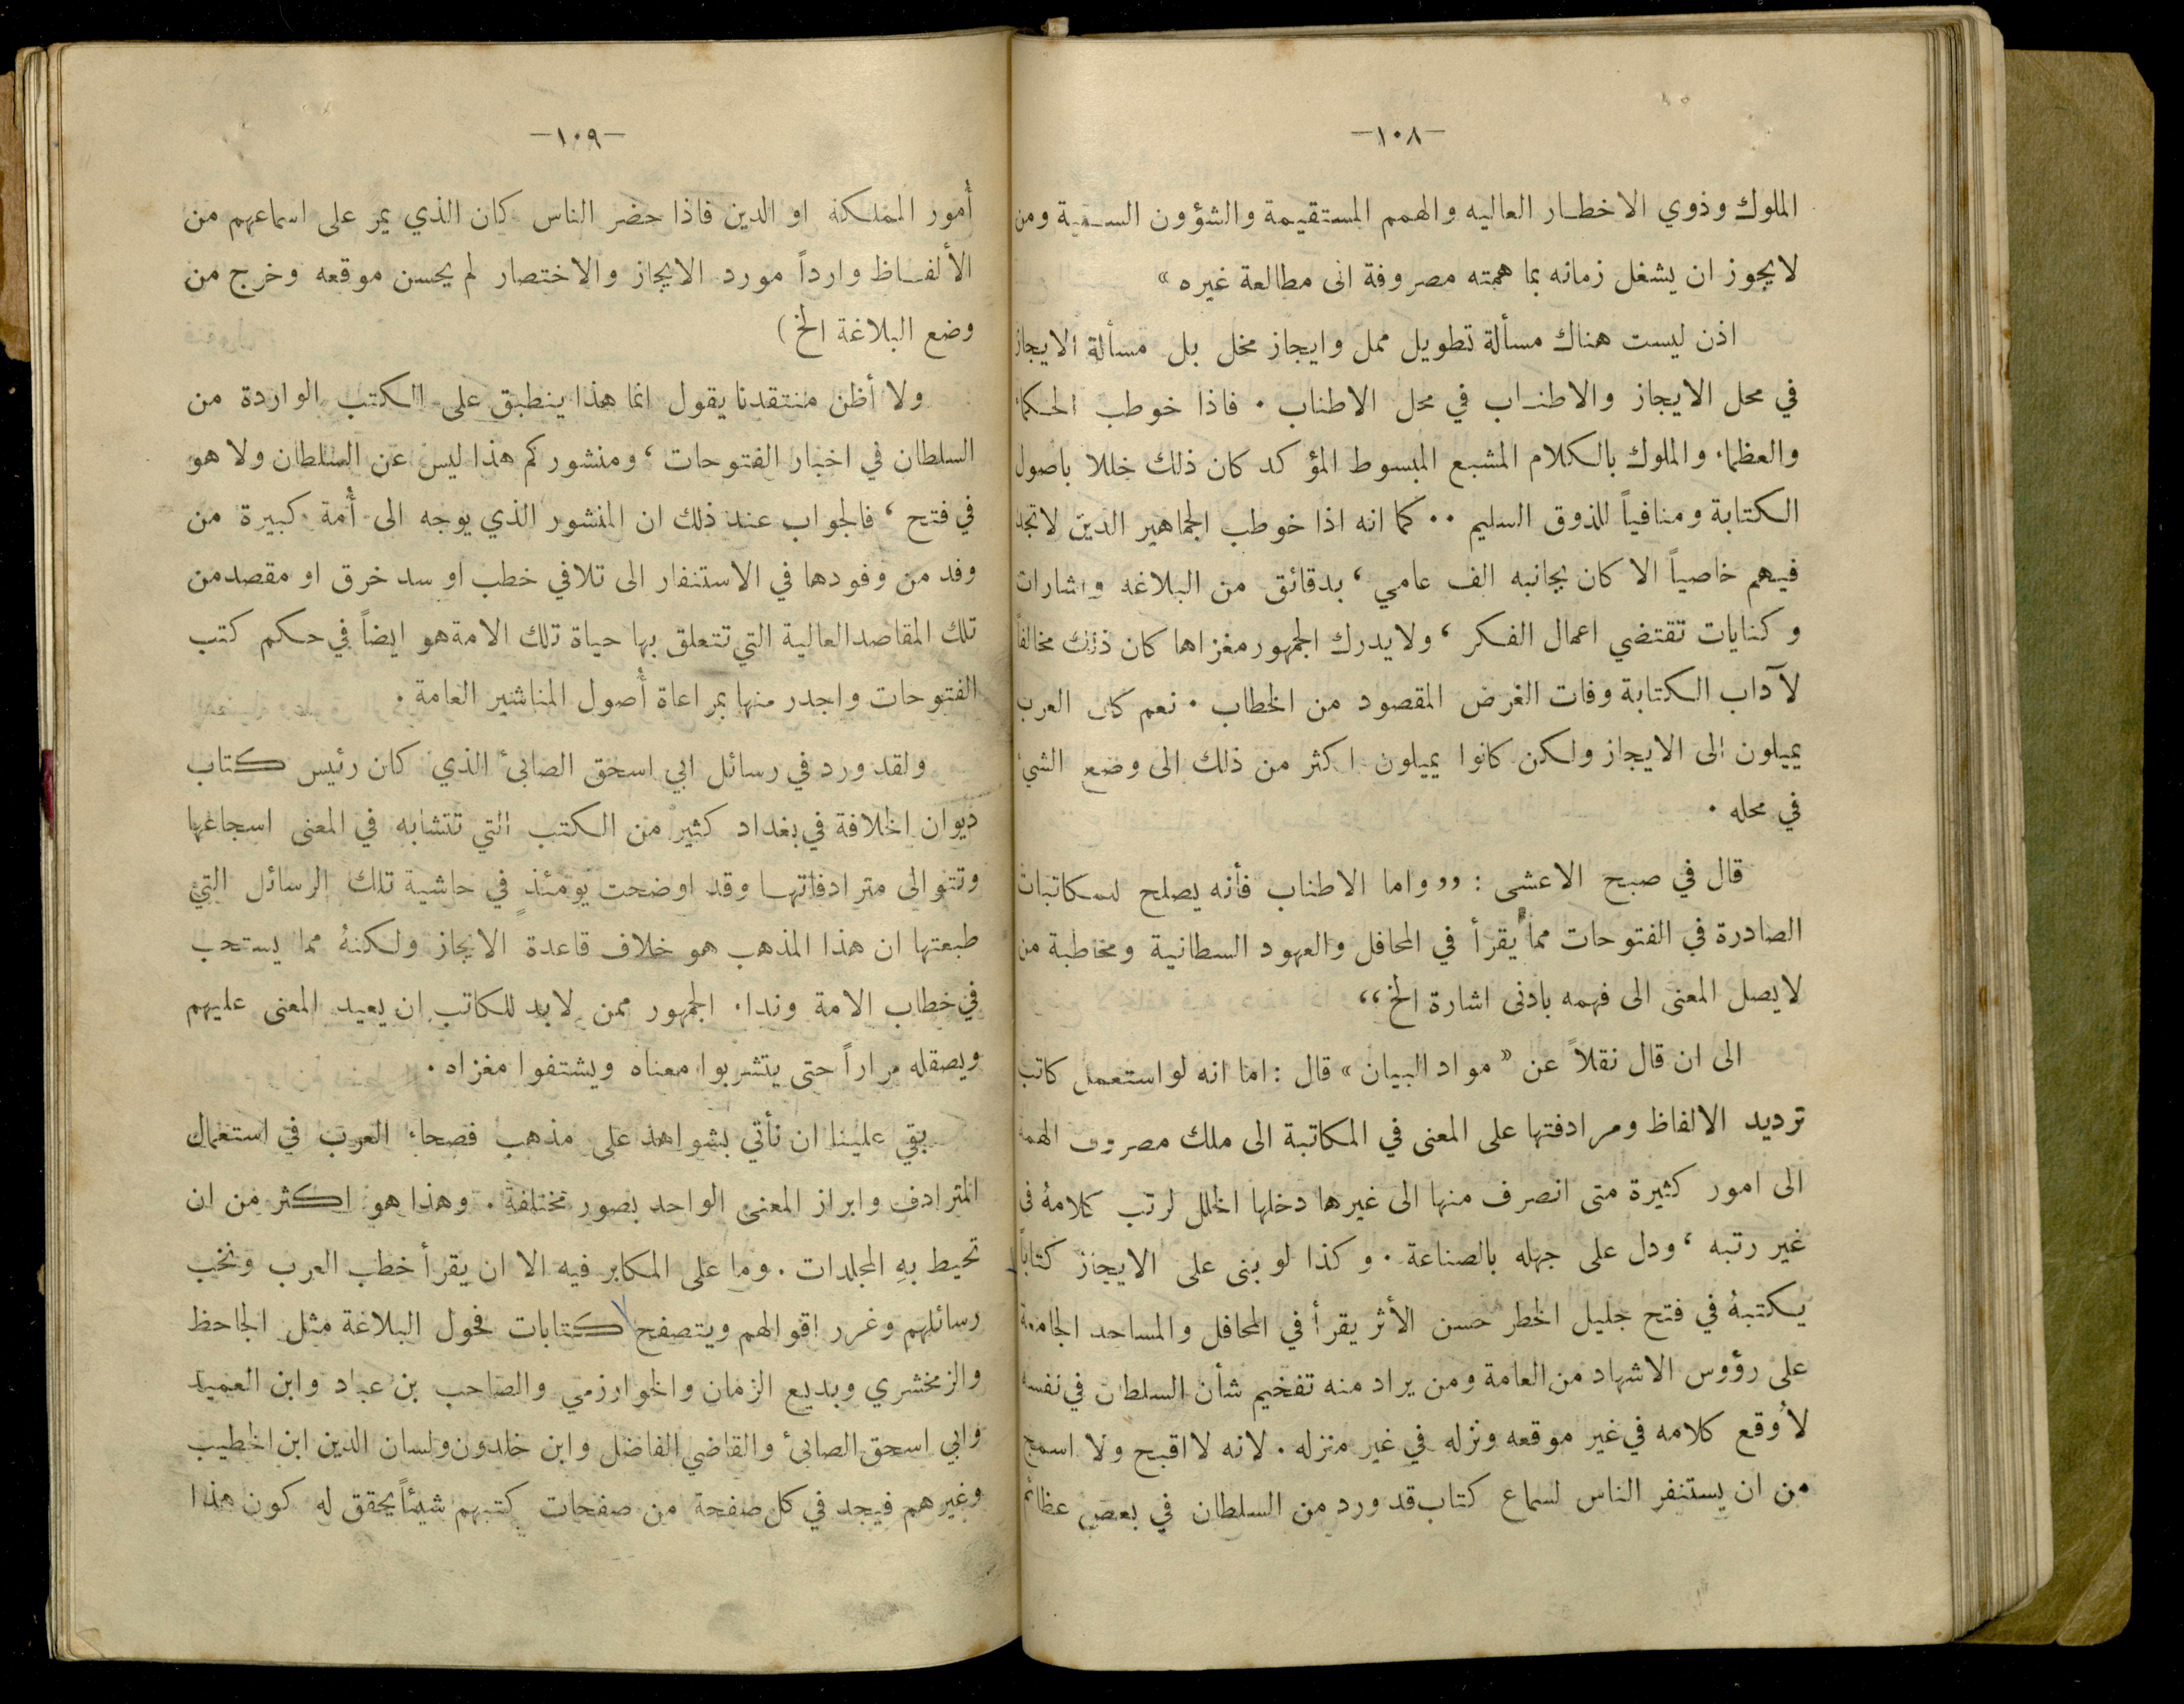 —١٠٨—
الملوك وذوي الاخطار العاليه والهمم المستقيمة والشؤون السمية ومن
لايجوز ان يشغل زمانه بما همته مصروفة الى مطالعة غيره »
اذن ليست هناك مسألة تطويل ممل وايجاز مخل بل مسألة الايجاز
في محل الايجاز والاطناب في محل الاطناب . فاذا خوطب الحكماء
والعظماء والملوك بالكلام المشبع المبسوط المؤكد كان ذلك خللا باصول
الكتابة ومنافياً للذوق السليم .. كما انه اذا خوطب الجماهير الدين لاتجد
فيهم خاصياً الا كان بجانبه الف عامي ، بدقائق من البلاغه واشارات
وكنايات تقتضي اعمال الفكر ، ولايدرك الجمهور مغزاها كان ذلك مخالفاً
لآداب الكتابة وفات الغرض المقصود من الخطاب . نعم كان العرب
يميلون الى الايجاز ولكن كانوا يميلون اكثر من ذلك الى وضع الشيء
في محله .
قال في صبح الاعشى : ,, واما الاطناب فأنه يصلح للمكاتبات
الصادرة في الفتوحات مما يُقرأ في المحافل والعهود السطانية ومخاطبة من
لايصل المعنى الى فهمه بادنى اشارة الخ ,,
الى ان قال نقلاً عن « مواد البيان » قال : اما انه لو استعمل كاتب
ترديد الالفاظ ومرادفتها على المعنى في المكاتبة الى ملك مصروف الهمة
الى امور كثيرة متى انصرف منها الى غيرها دخلها الخلل لرتب كلامهُ في
غير رتبه ، ودل على جهله بالصناعة . وكذا لو بنى على الايجاز كتاباً
يكتبهُ في فتح جليل الخطر حسن الأثر يقرأ في المحافل والمساحد الجامعة
على رؤوس الاشهاد من العامة ومن يراد منه تفخيم شأن السلطان في نفسه
لأوقع كلامه في غير موقعه ونزله في غير منزله . لانه لااقبح ولا اسمج
من ان يستنفر الناس لسماع كتاب قد ورد من السلطان في بعض عظائم
—١٠٩—
أُمور المملكة او الدين فاذا حضر الناس كان الذي يمر على اسماعهم من
الألفاظ وارداً مورد الايجاز والاختصار لم يحسن موقعه وخرج من
وضع البلاغة الخ )
ولا أظن منتقدنا يقول انما هذا ينطبق على الكتب الواردة من
السلطان في اخبار الفتوحات ، ومنشوركم هذا ليس عن السلطان ولا هو
في فتح ، فالجواب عند ذلك ان المنشور الذي يوجه الى أُمة كبيرة من
وفد من وفودها في الاستنفار الى تلافي خطب او سد خرق او مقصد من
تلك المقاصد العالية التي تتعلق بها حياة تلك الامة هو ايضاً في حكم كتب
الفتوحات واجدر منها بمراعاة أُصول المناشير العامة .
ولقد ورد في رسائل ابي اسحق الصابئ الذي كان رئيس كتاب
ديوان الخلافة في بغداد كثير من الكتب التي تتشابه في المعنى اسجاعها
وتتوالى مترادفاتها وقد اوضحت يومئذٍ في حاشية تلك الرسائل التي
طبعتها ان هذا المذهب هو خلاف قاعدة الايجاز ولكنهُ مما يستحب
في خطاب الامة ونداء الجمهور ممن لابد للكاتب ان يعيد المعنى عليهم
ويصقله مراراً حتى يتشربوا معناه ويشتفوا مغزاه .
بقي علينا ان نأتي بشواهد على مذهب فصحاء العرب في استعمال
المترادف وابراز المعنى الواحد بصور مختلفة . وهذا هو اكثر من ان
تحيط بهِ المجلدات . وما على المكابر فيه الا ان يقرأ خطب العرب ونخب
رسائلهم وغرر اقوالهم ويتصفح كتابات فحول البلاغة مثل الجاحظ
والزمخشري وبديع الزمان والخوارزمي والصاحب بن عباد وابن العميد
وابي اسحق الصابئ والقاضي الفاضل وابن خلدون ولسان الدين ابن الخطيب
وغيرهم فيجد في كل صفحة من صفحات كتبهم شيئاً يحقق له كون هذا